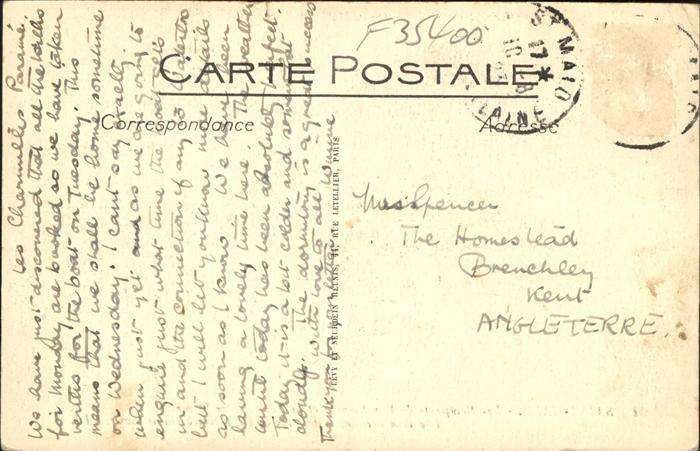 F35400
CARTE POSTALE
Correspondance
Adresse
ST MALO
17 *
ILAINE
Les Charmilles Paramé.
We have just discovered that all the berths
for Monday are booked so we have taken
berths for the boat on Tuesday. This
means that we shall be home sometime
on Wednesday. I can't say exactly
when just yet and as we are going to
enquire just what time the boat gets
in and the connection if any to
but I will let you know more details
as soon as I know. We have been
having a lovely time here. The weather
until today has been absolutely perfect.
Today it is a bit colder and somewhat
cloudy. The dormitory is a great success
With love to all
Thank you for
LEVY ET NEURDEIN REUNIS, 44, RUE LETELLIER, PARIS
Mrs Spencer
The Homestead
Brenchley
Kent
ANGLETERRE.